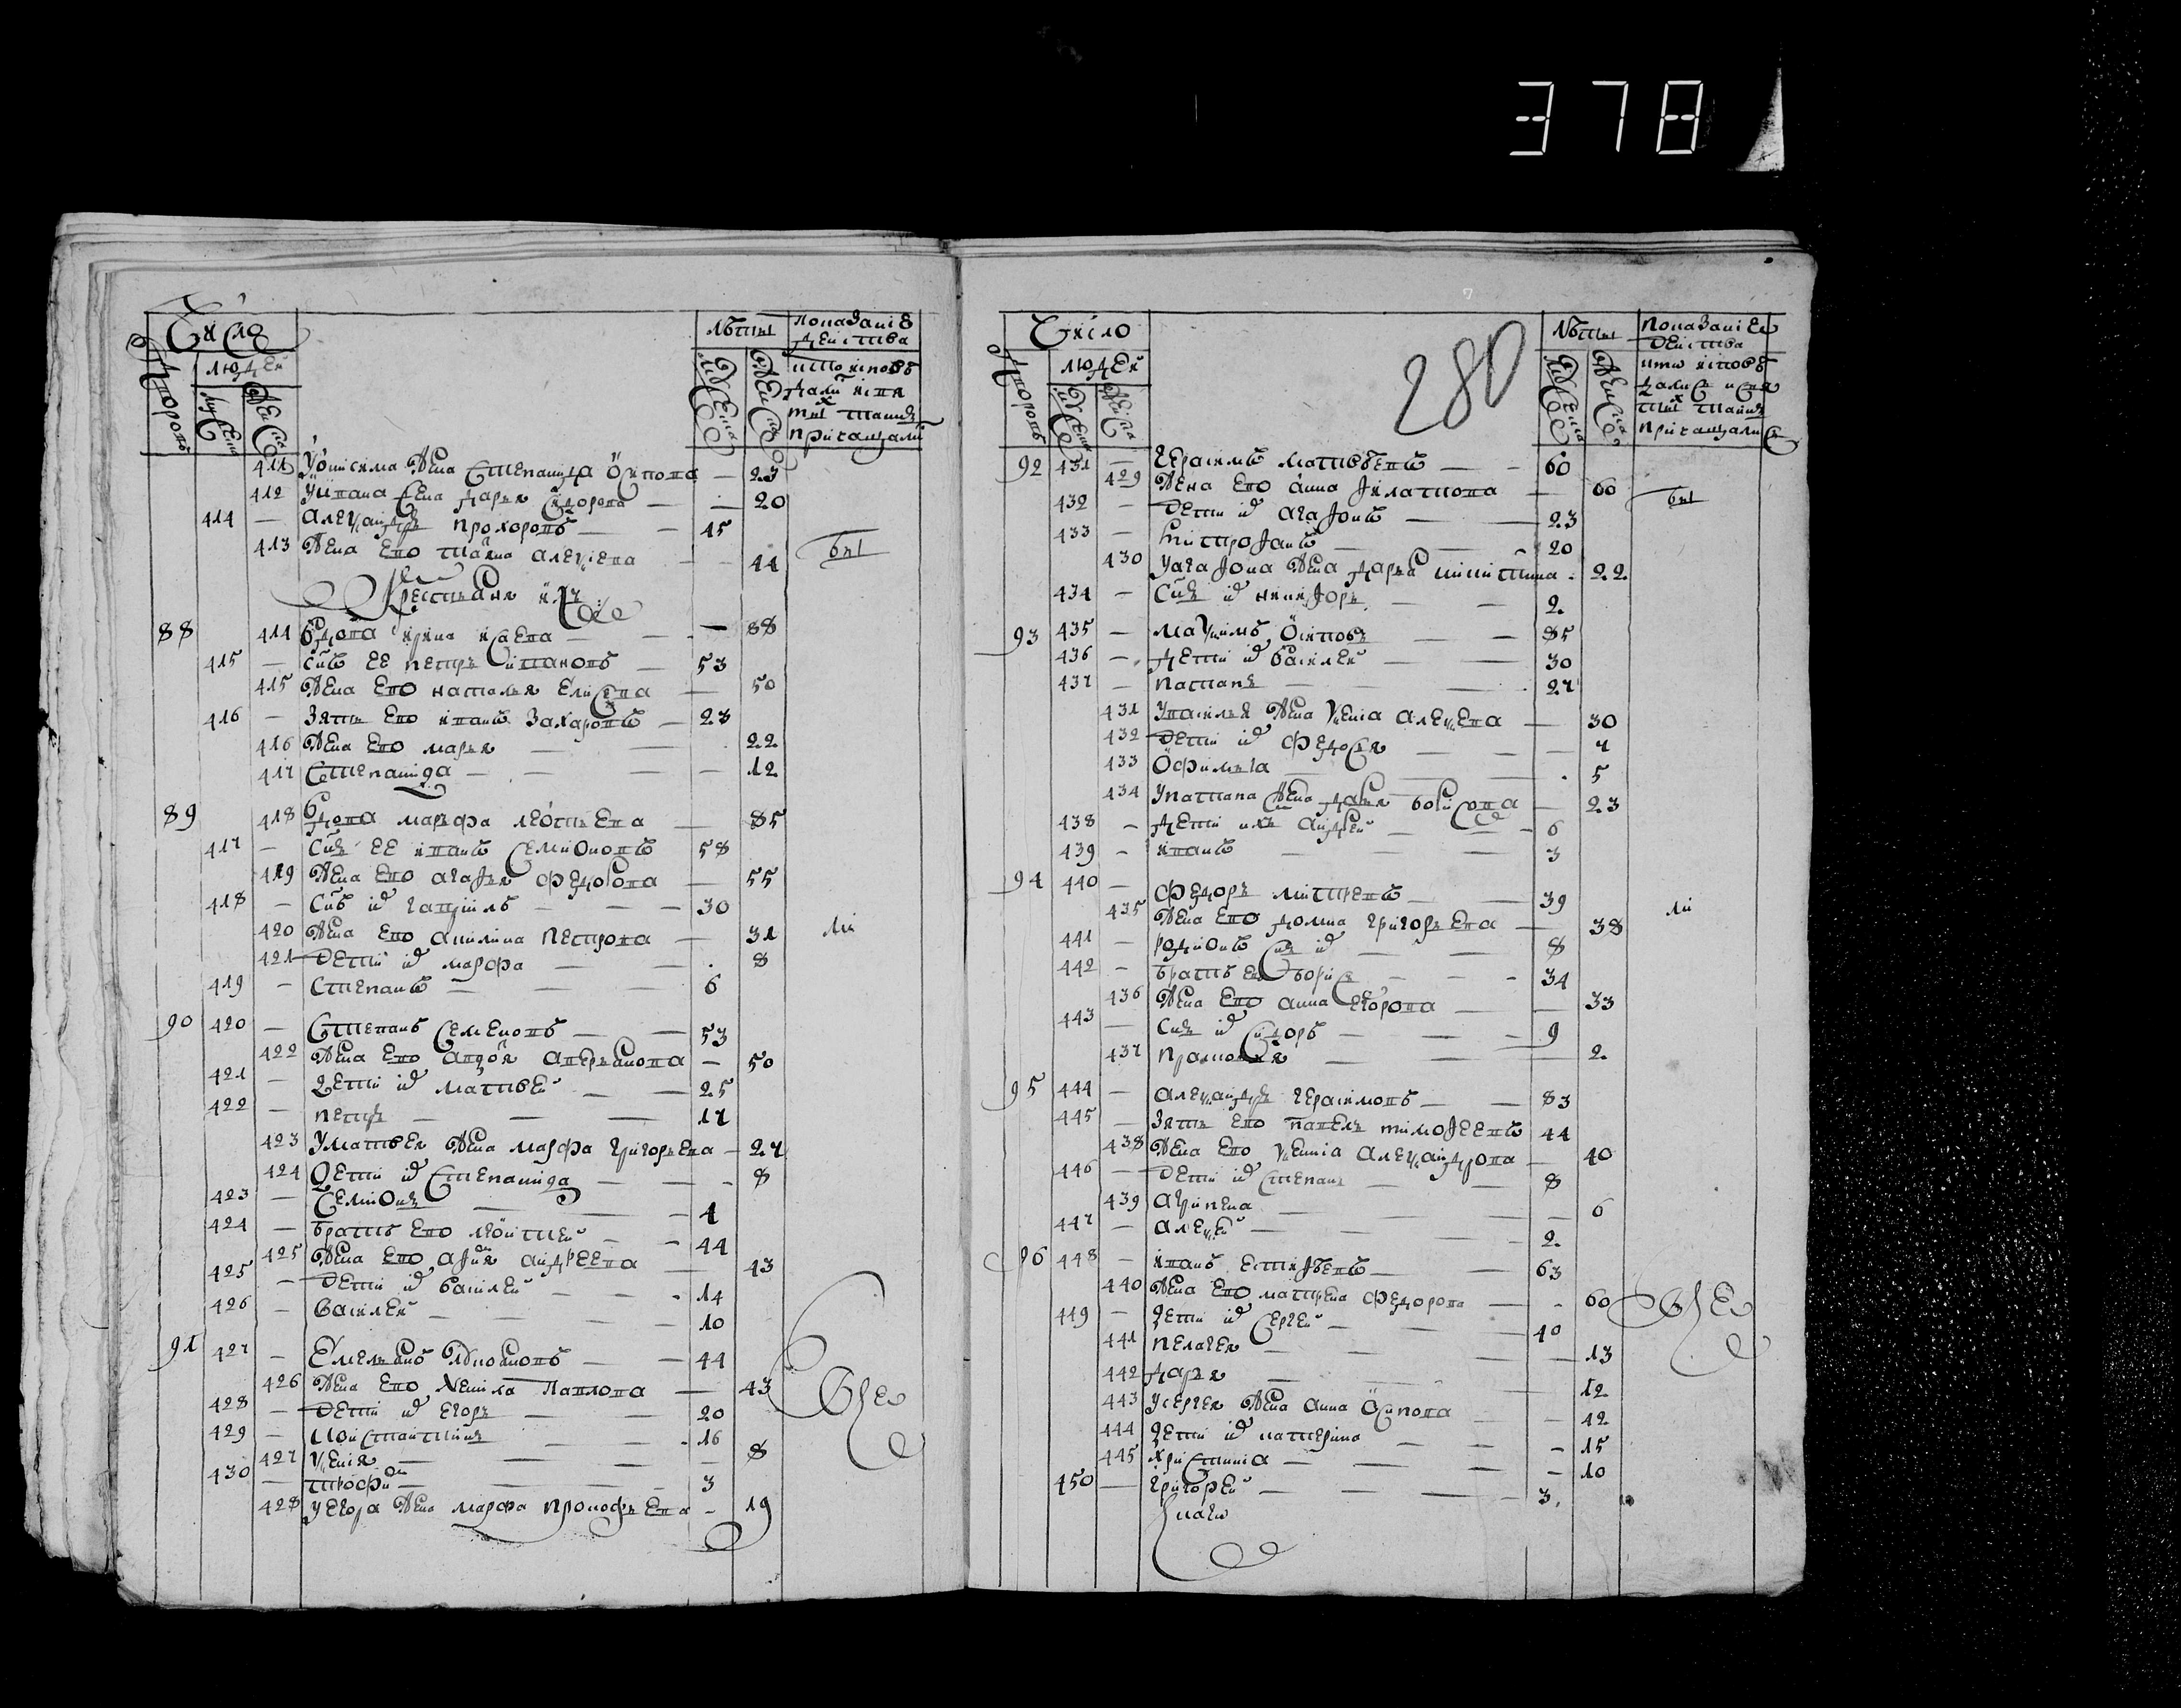 378
Число
Дворовъ
людей
Мужеска
Женска
лѣты
Мужеска
Женска
показание
действа
кто исповѣ
дали и свя
тых таинъ
причащали
411 Уонисима жена Степанида Осипова — 23
412 Уивана жена дарья Сидорова — 20
414 — александръ прохоровъ — 45
413 жена ево татияна алексеева — 44
Крестьяня ихъ
88 414 вдова ирина исаева — 88
415 — снъ ее петръ Степановъ — 53
415 жена ево наталья Елисеева — 50
416 — зять ево иванъ Захаровъ — 23
416 жена ево марья — 22
417 Степанида — 12
89 418 вдова марфа леонтьева — 85
417 — Снъ ее иванъ Семионовъ 58
419 жена ево агафья федорова — 55
418 — Снъ их гаврилъ — 30
420 жена ево акилина петрова — 31
421 дети их марфа — 8
419 — Степанъ — 6
90 420 — Степанъ Семеновъ — 53
422 жена ево авдотья андреянова — 50
421 — дети их матвей — 25
422 — петръ — 17
423 Уматвея жена марфа григорьева — 27
424 дети их Степанида — 8
423 — Семионъ — 4
424 — братъ ево леонтей — 44
425 жена ево афимья андреева — 43
425 — дети их василей — 14
426 — Василей — 10
91 427 — Емельянъ — 44
426 жена ево павлова — 43
428 — дети их егоръ — 20
429 — Констянтинъ — 16
427 ксения — 8
430 — трофим — 3
428 уегора жена марфа прокофьева — 19
вы
ли
Всех
280
Число
Дворовъ
людей
Мужеска
Женска
лѣты
Мужеска
Женска
показание
действа
кто исповѣ
дались и свя
тых таинъ
причащались
92 431 — герасимъ матвѣевъ — 60
429 жена ево анна филатова — 60
432 — дети их агафонъ — 23
433 — митрофанъ — 20
430 уагафона жена дарья никитина 22
434 — Снъ их никифоръ — 2
93 435 — максимъ Осиповъ — 85
436 — дети их василей — 30
437 — натанъ — 27
431 Увасилья жена ксения алексеева — 30
432 дети их федосья — 7
433 Офимья — 5
434 жена дарья борисова — 23
438 — дети ихъ андрей — 6
439 — иванъ — 3
94 440 — федоръ — 39
435 жена ево домна григорьева — 38
441 — родионъ снъ их — 8
442 — братъ ево борисъ — 34
436 жена ево анна егорова — 33
443 — снъ их Сидоръ — 9
437 прасковья — 2
95 444 — александръ герасимовъ — 83
445 — зять ево павелъ тимофеевъ 44
438 жена ево ксения александрова — 40
446 — дети их степанъ — 8
439 агрипена — 6
447 — алексей — 2
96 448 — иванъ естифѣевъ — 63
440 жена ево матрена федорова — 60
449 — дети их Сергей — 40
441 пелагея — 13
442 дарья — 12
443 усергея жена анна Осипова — 42
444 дети их катерина — 15
445 христиния — 10
450 — григорей — 3
вы
ли
Всех